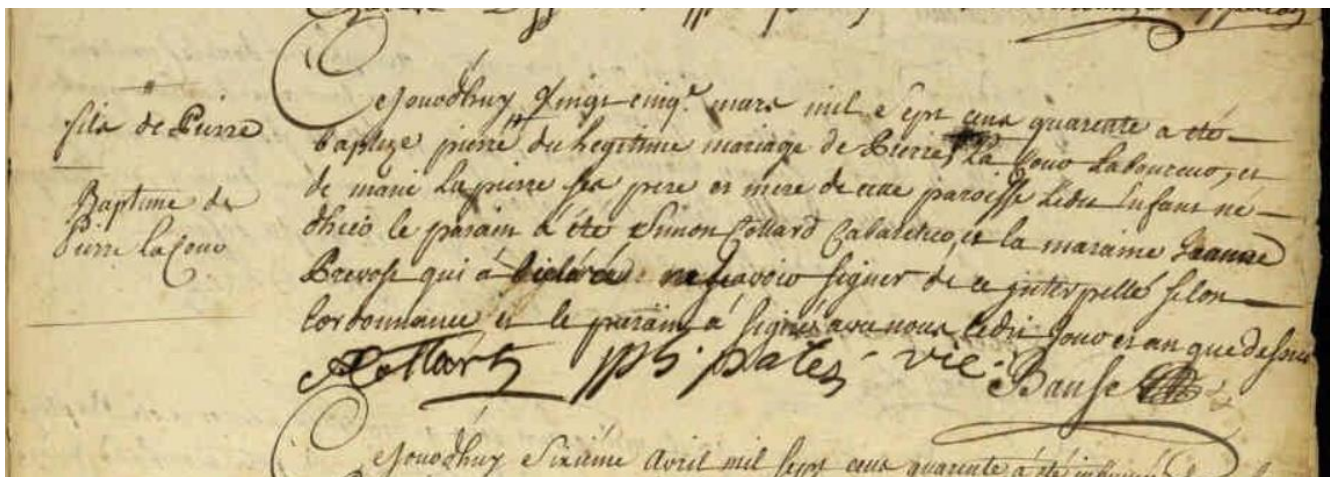 fils de Pierre
Baptême de
Pierre la Cour
Ejourdhuy Vingt cinq.e mars mil sept cens quarente a été
baptizé pierre du legitime mariage de Pierre La Cour Laboureur, et
de marie La pierre ses pere et mere de cette paroisse Ledit Enfant né
dhier le parain a été Simon Collard Cabaretier, et la maraine Jeanne
Prevost qui a déclaré ne sçavoir signer de ce interpellé selon
Lordonnance et le parain à signé avec nous Ledit Jour et an que dessus
Collart
vic.
Bause
Ejourdhuy Sixiéme Avril mil sept cens quarente a été inhumé